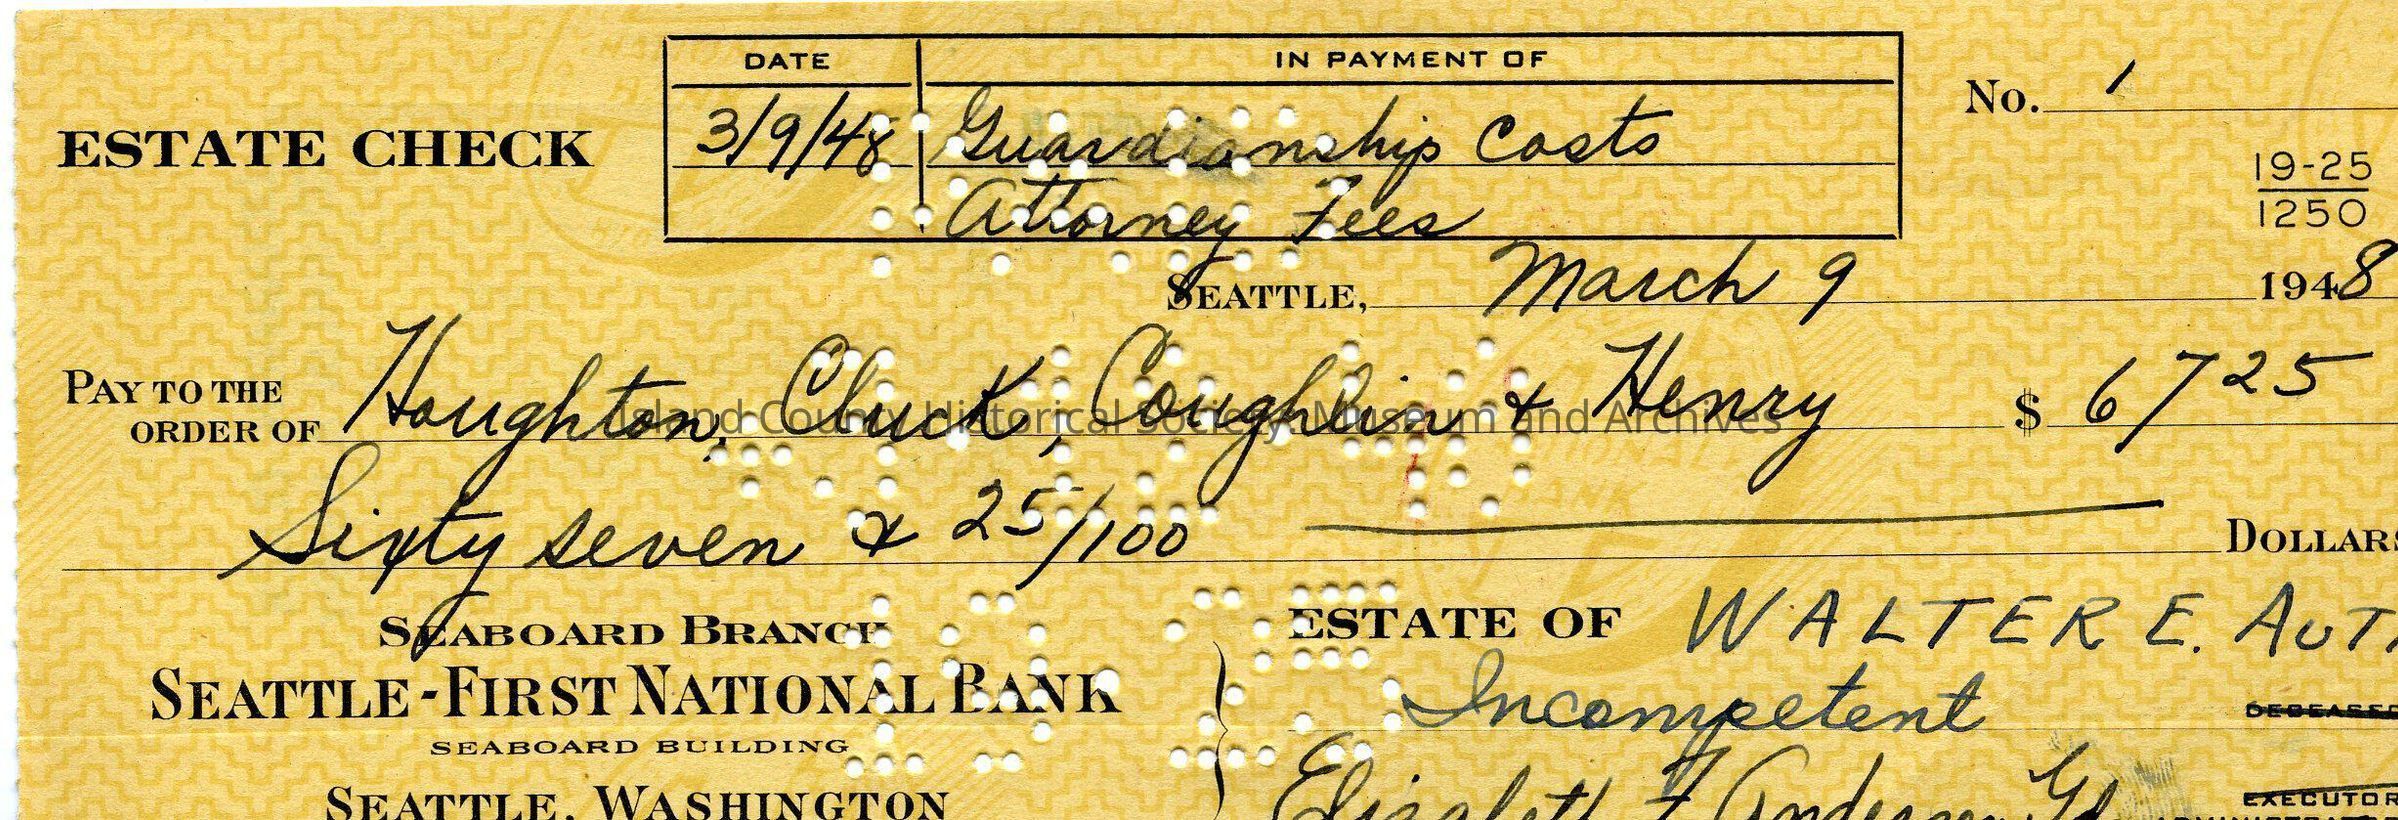 DATE IN PAYMENT OF
No. 1
ESTATE CHECK 3/9/48 Guardianship Costs
Attorney Fees
19-25
1250
SEATTLE, March 9 1948
PAY TO THE ORDER OF Houghton, Cluck, Coughlin & Henry $ 67 25
Island County Historical Society Museum and Archives
Sixty seven & 25/100 DOLLARS
SEABOARD BRANCH
ESTATE OF WALTER E. AUT
SEATTLE-FIRST NATIONAL BANK
Incompetent
DECEASED
SEABOARD BUILDING
SEATTLE, WASHINGTON
Elizabeth F Anderson Gd
EXECUTOR